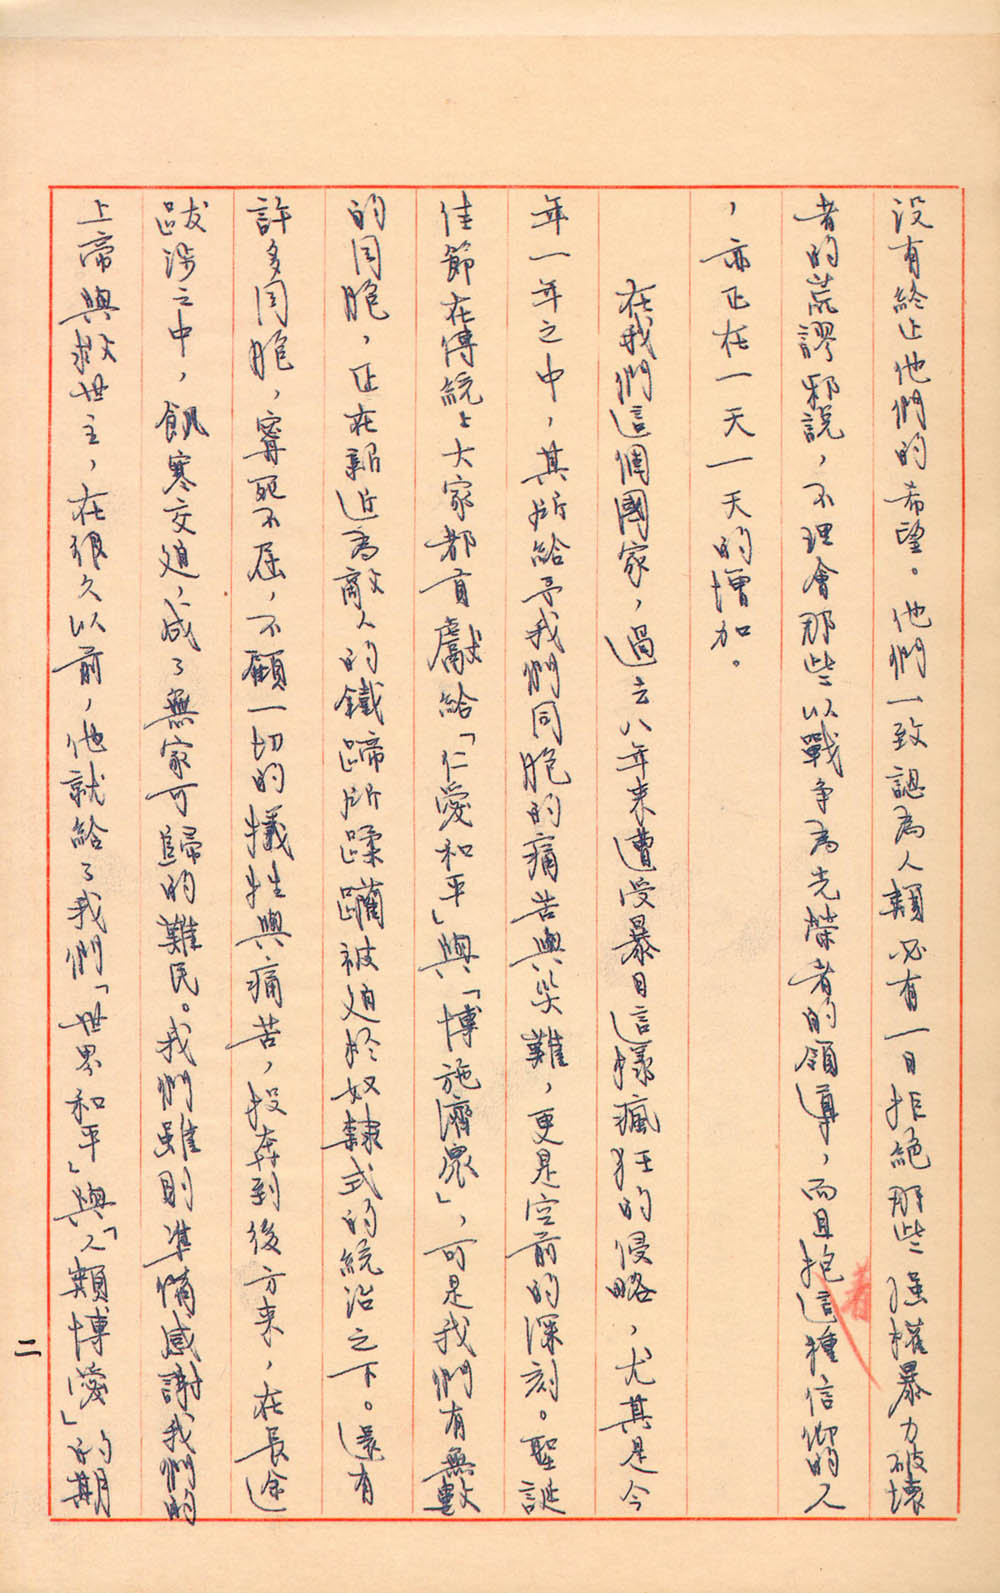 没有終止他們的希望。他們一致認為人類必有一日拒絕那些強權暴力破壞
者的荒謬邪說，不理會那些以戰争為光榮者的領導，而且抱着這種信仰的人
，亦正在一天一天的增加。
在我們這個國家，過去八年来遭受暴日這樣瘋狂的侵略，尤其是今
年一年之中，其所給予我們同胞的痛苦與災難，更是空前的深刻。聖誕
佳節在傳統上大家都貢獻給「仁愛和平」與「博施濟眾」，可是我們有無數
的同胞，正在新近為敵人的鐵蹄所蹂躪被迫於奴隸式的統治之下。還有
許多同胞，寧死不屈，不顧一切的犧牲與痛苦，投奔到後方来，在長途
跋涉之中，飢寒交迫，成了無家可歸的難民。我們雖則準備感謝我們的
上帝與救世主，在很久以前，他就給了我們「世界和平」與「人類博愛」的期
二